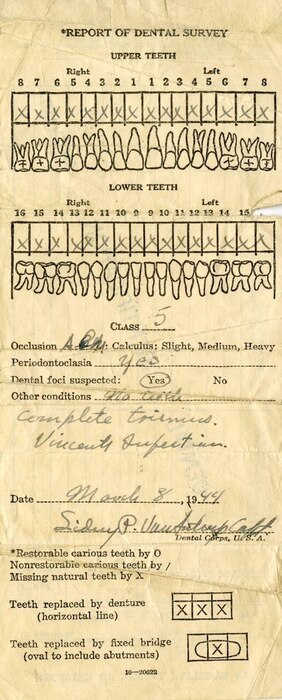 *REPORT OF DENTAL SURVEY
UPPER TEETH
Right Left
8 7 6 5 4 3 2 1 1 2 3 4 5 6 7 8
X X X X X X X X X X X X X X X X
LOWER TEETH
Right Left
16 15 14 13 12 11 10 9 9 10 11 12 13 14 15
X X X X X X X X X X X X X X X X
CLASS 5
Occlusion Calculus: Slight, Medium, Heavy
Periodontoclasia yes
Dental foci suspected: Yes No
Other conditions No teeth
Complete trismus.
Vincents Infection.
Date March 8, 1944
Sidney P. Capt.
Dental Corps, U. S. A.
*Restorable carious teeth by O
Nonrestorable carious teeth by /
Missing natural teeth by X
Teeth replaced by denture
(horizontal line)
X X X
Teeth replaced by fixed bridge
(oval to include abutments)
X
16—20622